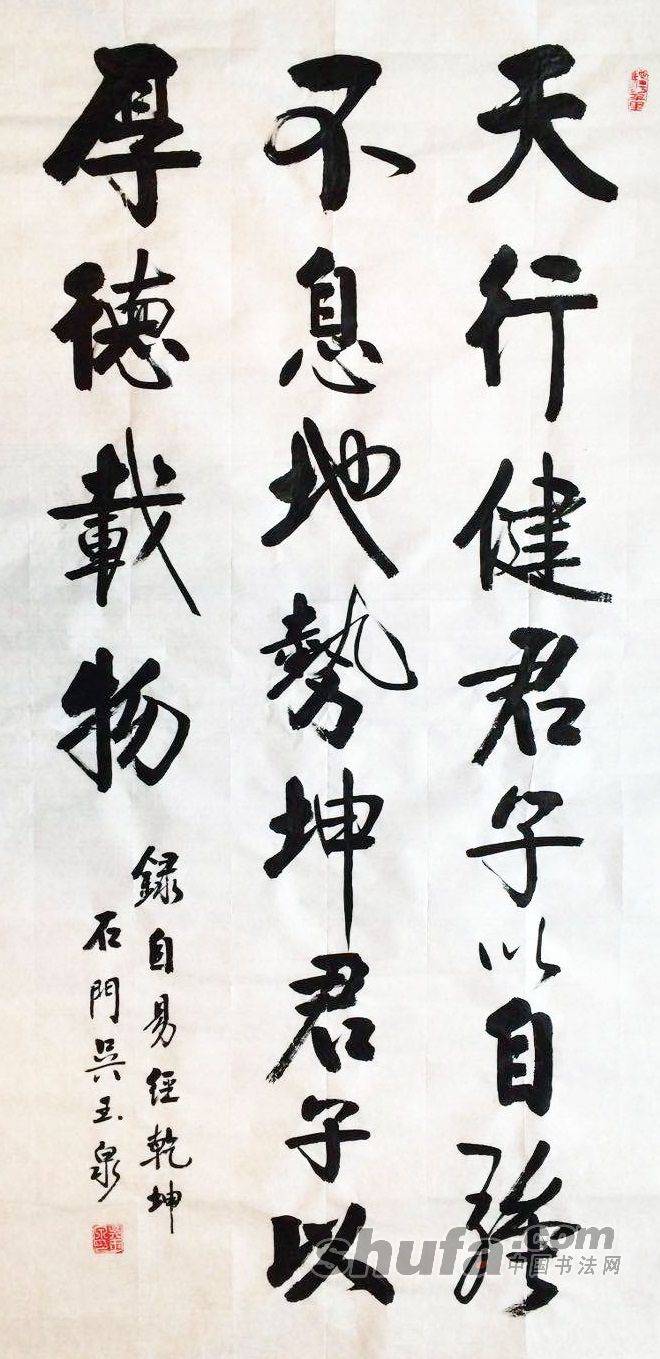 天行健君子以自強
不息地勢坤君子以
厚德載物
錄自易經乾坤
石門吳玉泉
shufa.com
中国书法网